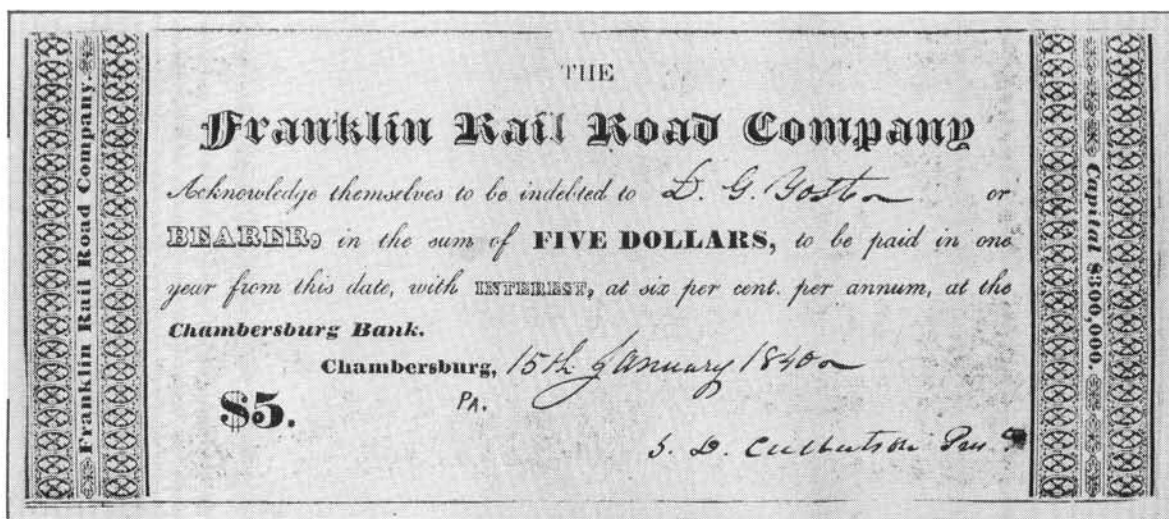 THE
Franklin Rail Road Company
Acknowledge themselves to be indebted to D. G. Yoster or
BEARER, in the sum of FIVE DOLLARS, to be paid in one
year from this date, with INTEREST, at six per cent. per annum, at the
Chambersburg Bank.
Chambersburg, 15th January 1840
PA.
$5.
S. D. Culbertson Pres
Franklin Rail Road Company.
Capital $300,000.